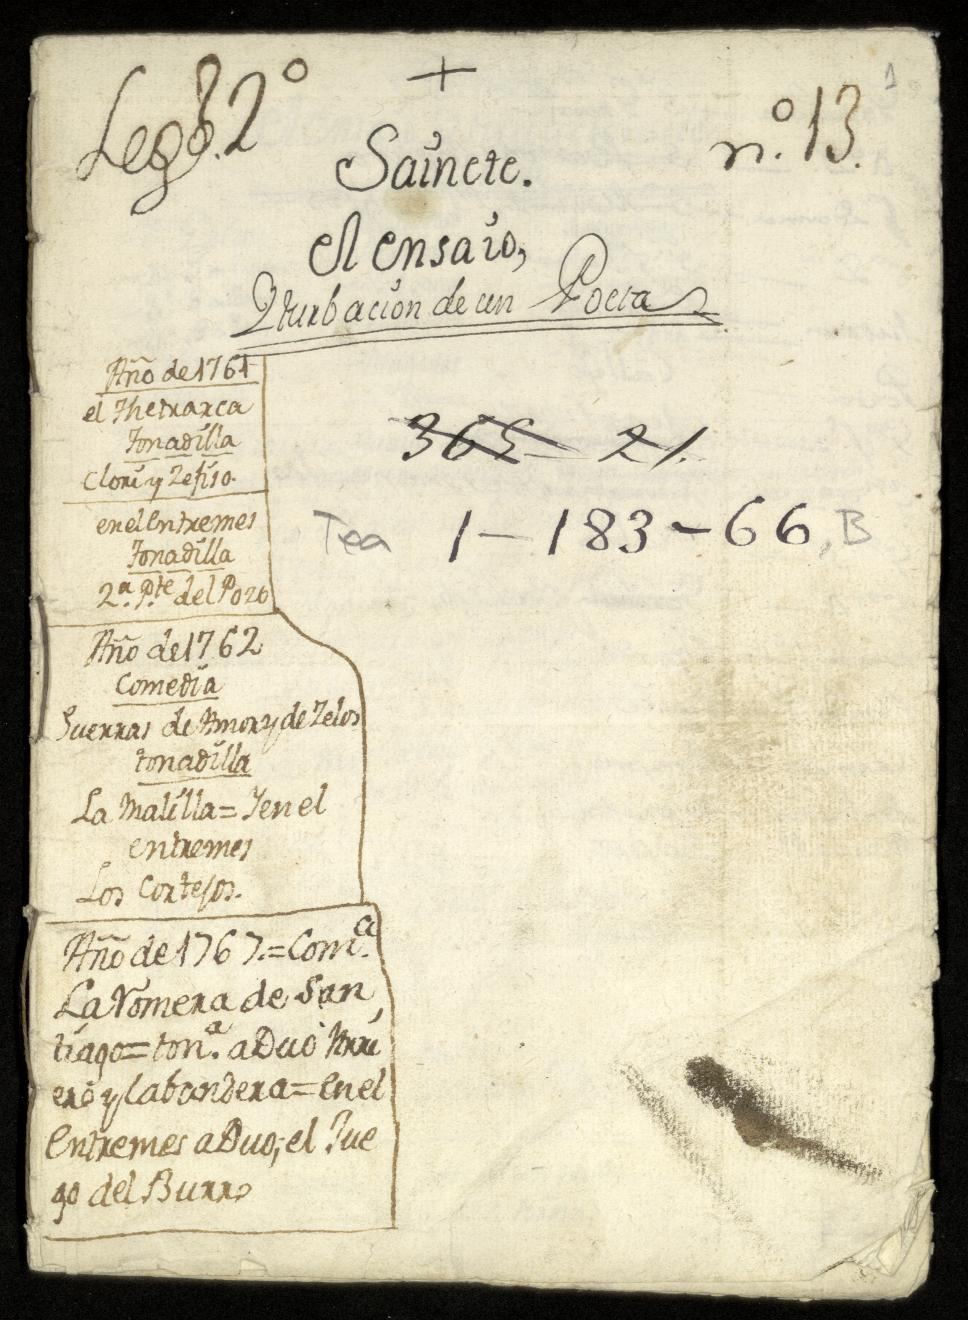 1
Leg.º 2º
+
n.º 13.
Sainete.
el ensaio,
Yturbacion de un Poeta
Año de 1761
el Thetrarca
Tonadilla
Clori y Zefiro.
en el Entremes
Tonadilla
2.ª P.te del Pozo
365 - 21.
Tea 1-183-66, B
Año de 1762
Comedia
Guerras de Amor y de Zelos
tonadilla
La Malilla = Yen el
entremes
Los Cortejos.
Año de 1767. = Com.ª
La Romera de San
tiago = ton.ª a Duo Arri
ero y labandera = en el
Entremes a Duo, el Jue
go del Burro